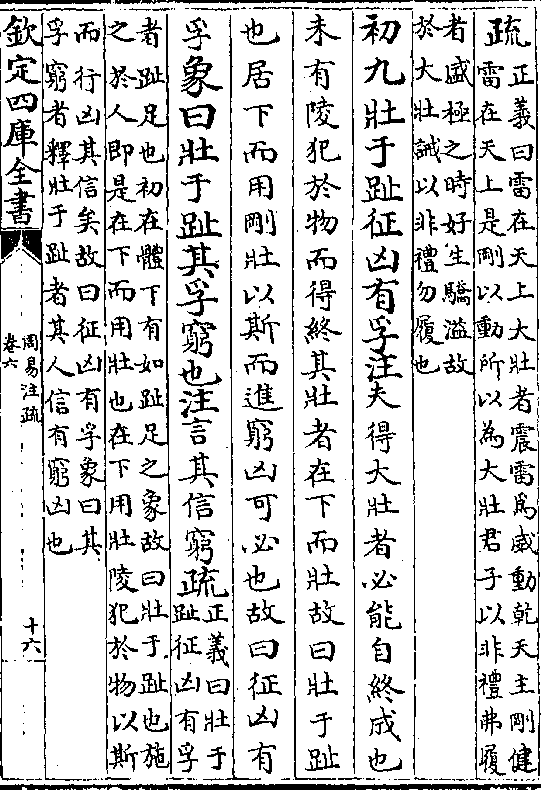 疏正義曰雷在天上大壯者震雷爲威動乾天主剛健
雷在天上是剛以動所以為大壯君子以非禮弗履
者盛極之時好生驕溢故
於大壯誡以非禮勿履也
初九壯于趾征凶有孚注夫得大壯者必能自終成也
未有陵犯於物而得終其壯者在下而壯故曰壯于趾
也居下而用剛壯以斯而進窮凶可必也故曰征凶有
孚象曰壯于趾其孚窮也注言其信窮疏正義曰壯于
趾征凶有孚
者趾足也初在體下有如趾足之象故曰壯于趾也施
之於人即是在下而用壯也在下用壯陵犯於物以斯
而行凶其信矣故曰征凶有孚象曰其
孚窮者釋壯于趾者其人信有窮凶也
欽定四庫全書
周易注疏
卷六
十六